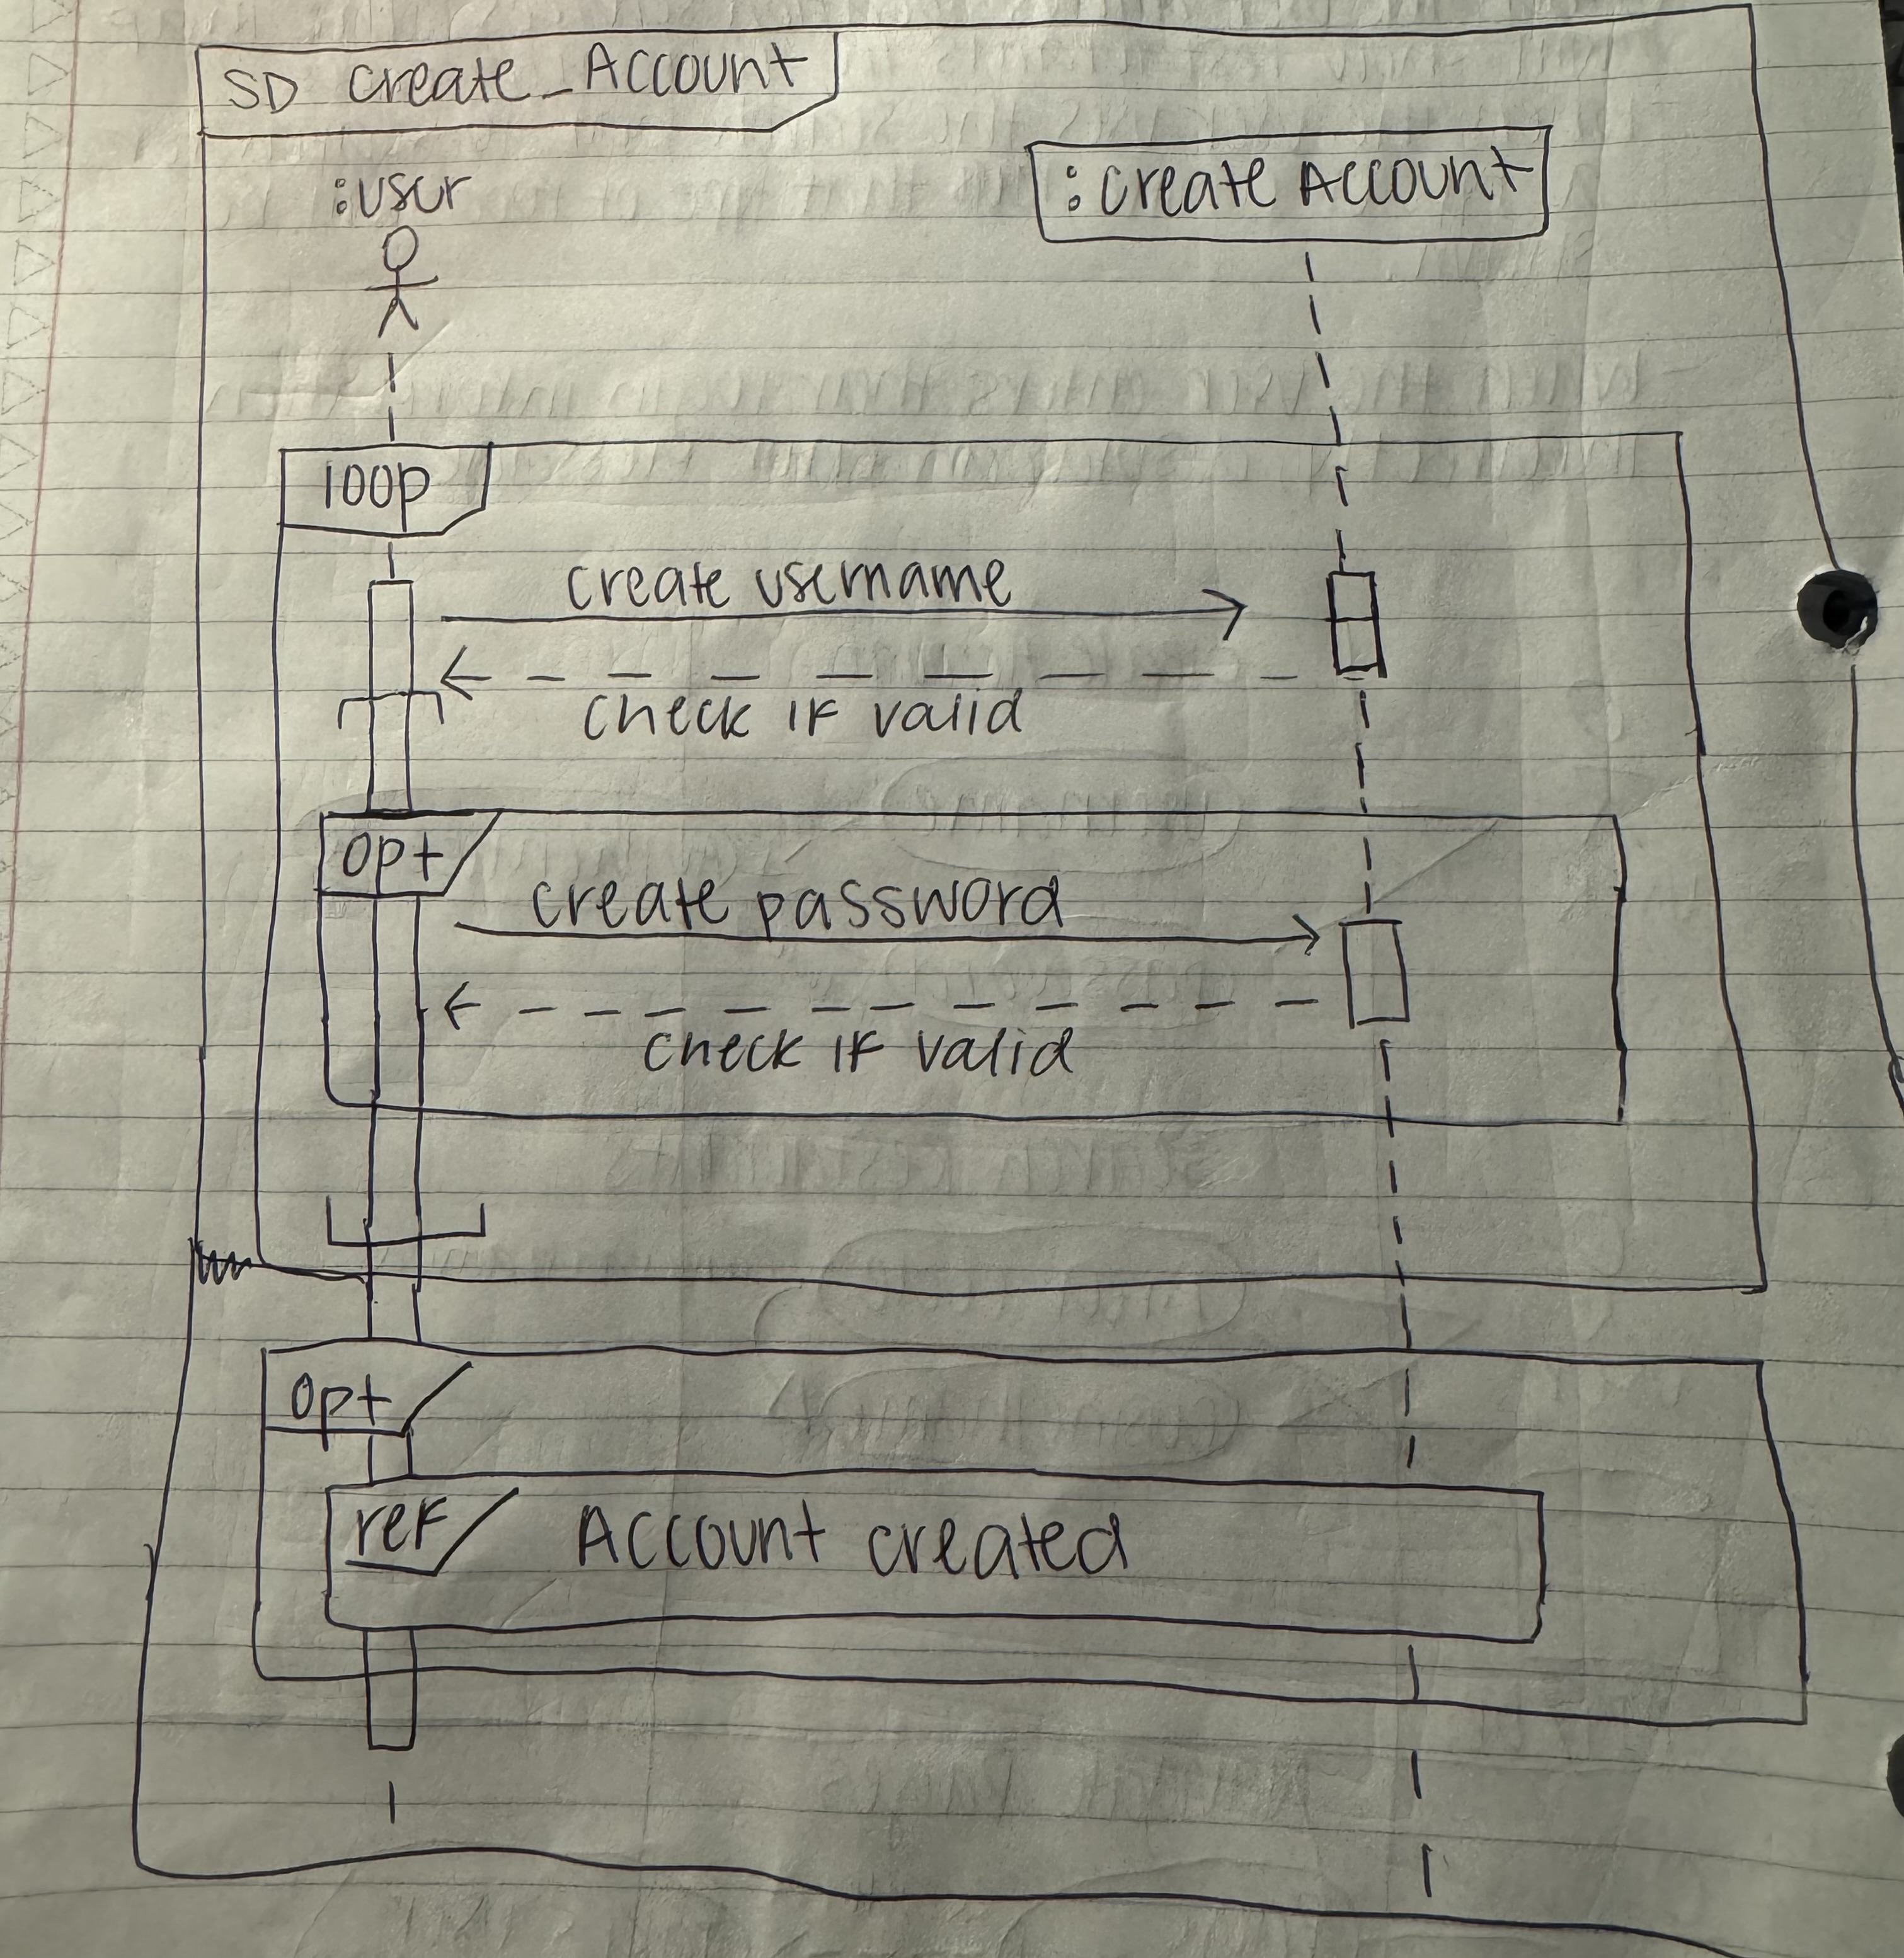 SD create_Account
:user
:create Account
loop
create username
check if valid
opt
create password
check if valid
opt
ref
Account created